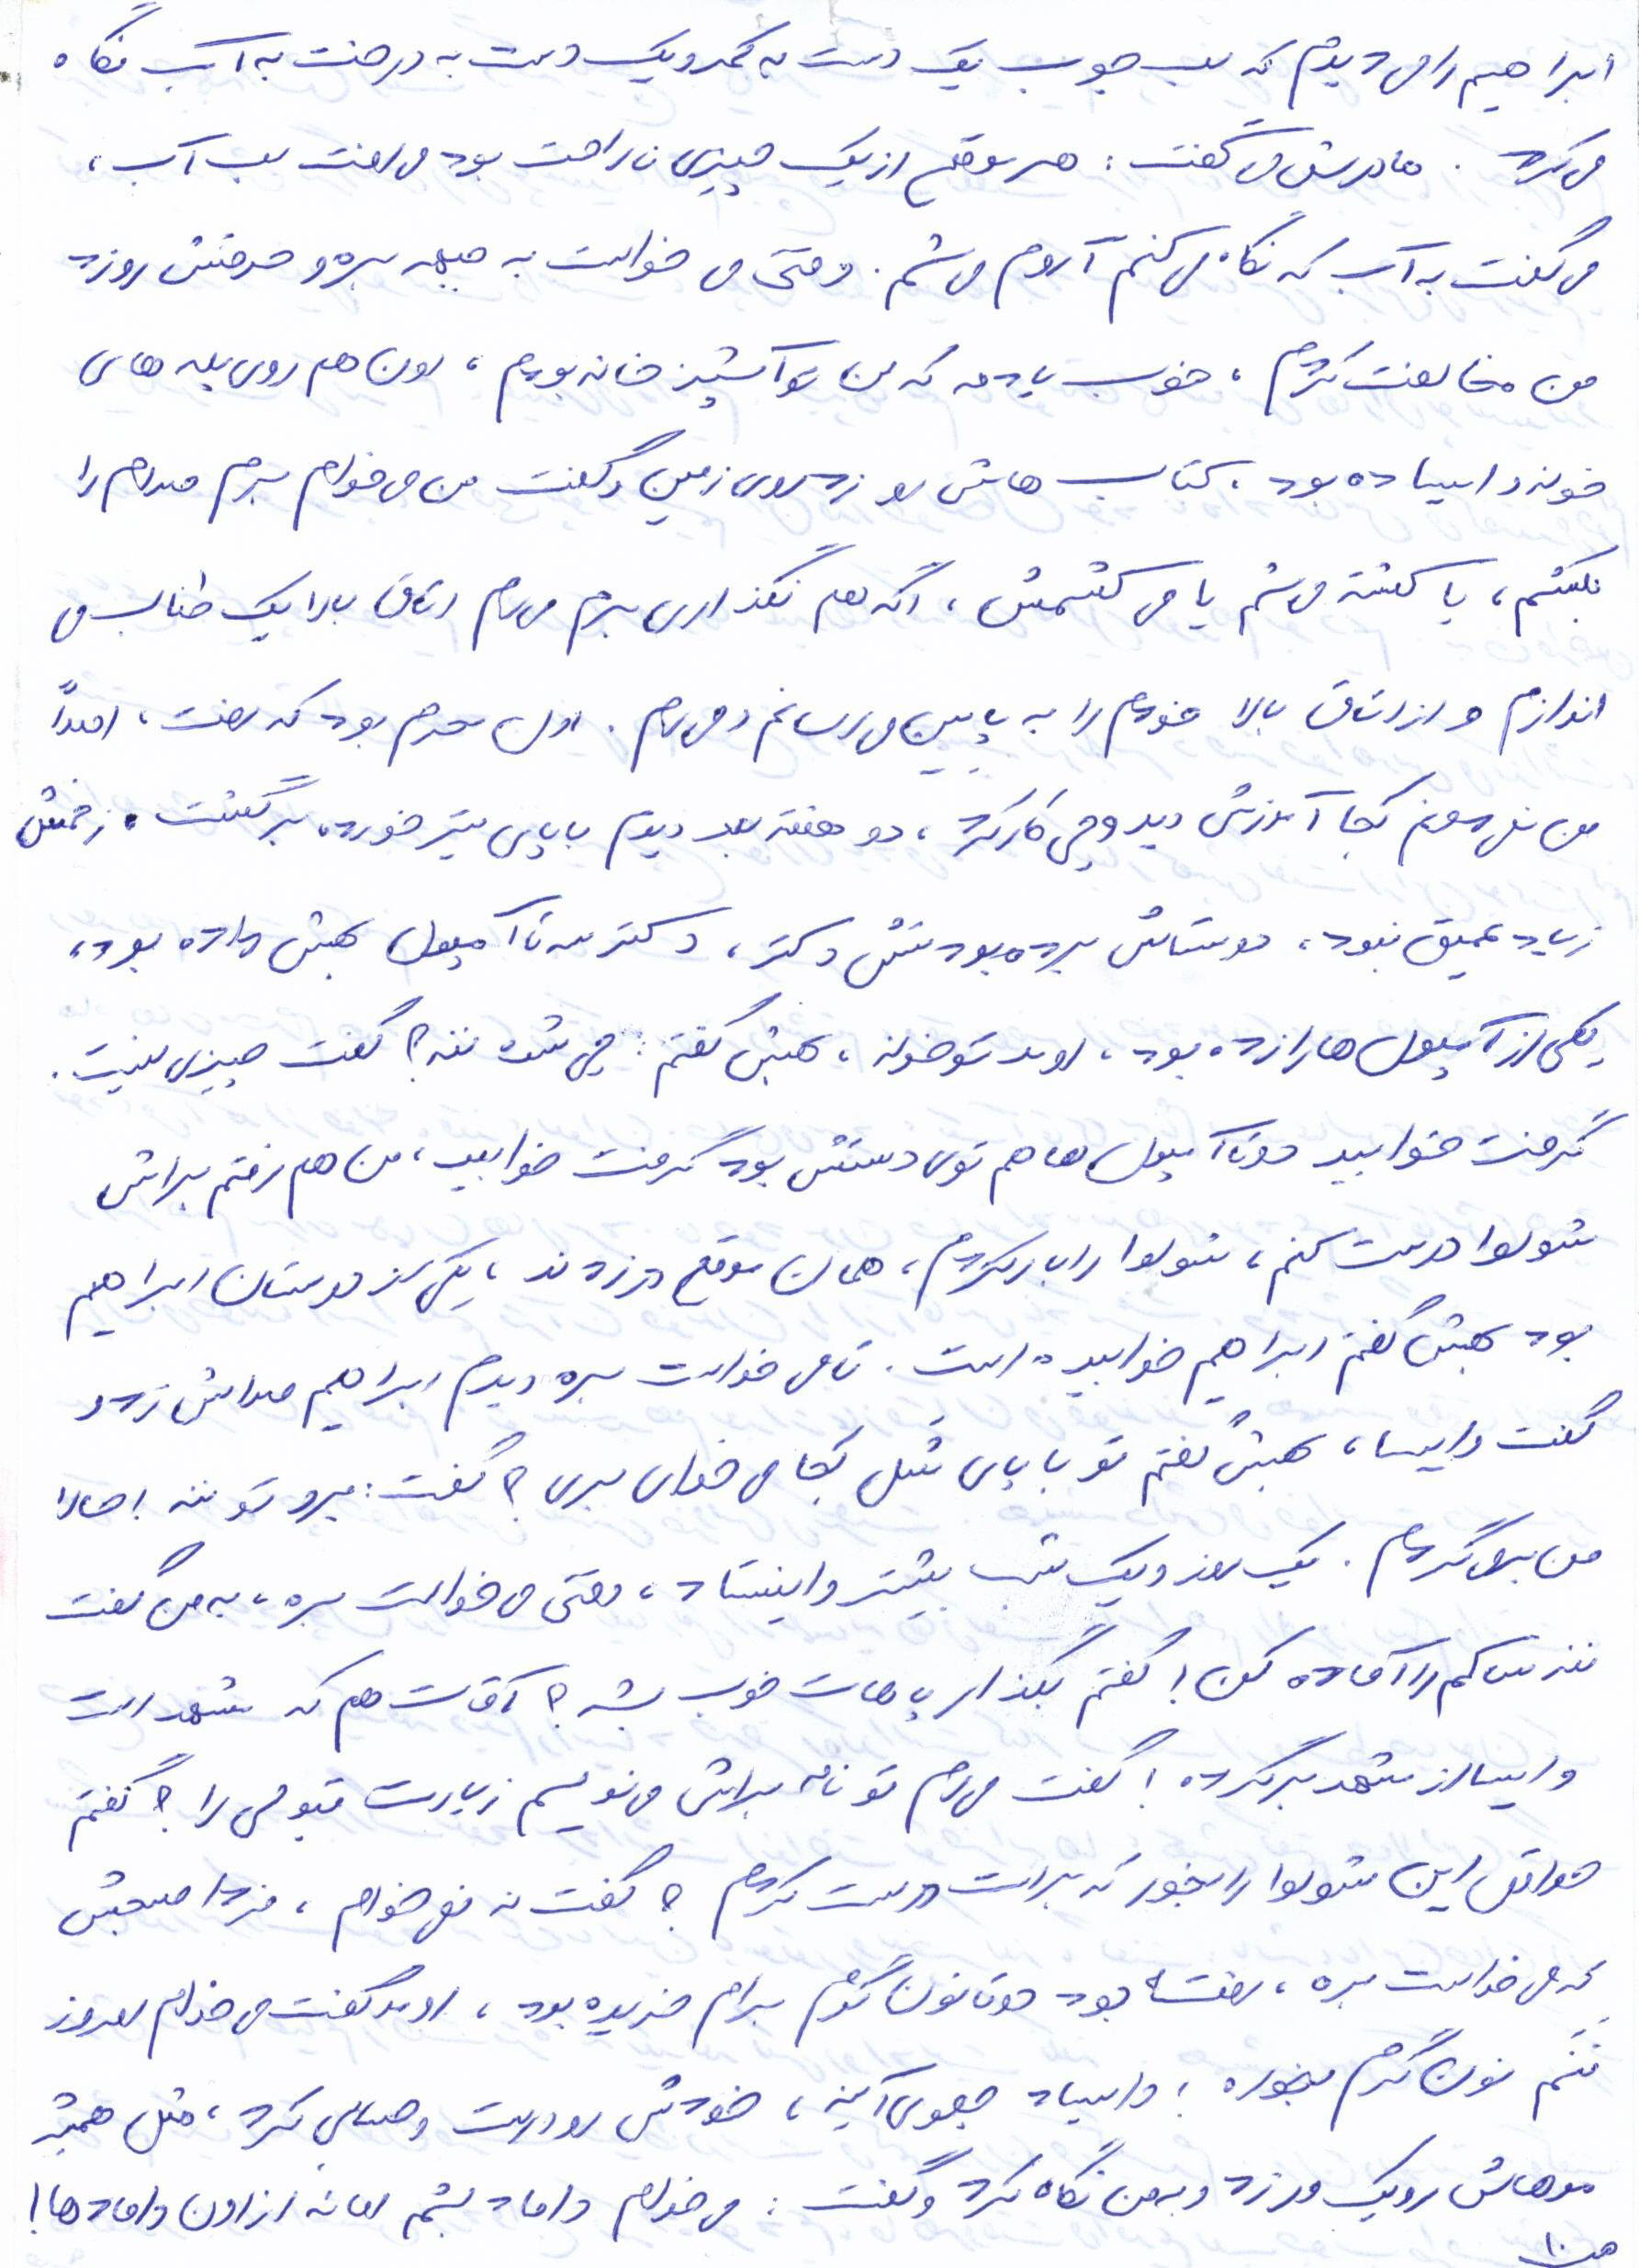 ابراهیم را می دیدم که لب جوب یک دست به کمر و یک دست به درخت به آب نگاه
می کرد . مادرش می گفت : هر موقع از یک چیزی ناراحت بود می رفت لب آب ،
می گفت به آب که نگاه می کنم آروم می شم . وقتی می خواست به جبهه بره و حرفش رو زد
من مخالفت کردم ، خوب یادمه که من تو آشپزخانه بودم ، اون هم روی پله های
خونه وایساده بود ، کتاب هاش رو زد روی زمین و گفت من می خوام برم صدام را
بکشم ، یا کشته می شم یا می کشمش ، اگه هم نگذاری برم می رم اتاق بالا یک طناب می
اندازم و از اتاق بالا خودم را به پایین می رسانم و می رم . اول محرم بود که رفت ، اصلاً
من نمی دونم کجا آموزش دید و چی کار کرد ، دو هفته بعد دیدم با پای تیر خورده برگشت . زخمش
زیاد عمیق نبود ، دوستاش برده بودنش دکتر ، دکتر سه تا آمپول بهش داده بود ،
یکی از آمپول ها را زده بود ، اومد تو خونه ، بهش گفتم : چی شده ننه ؟ گفت چیزی نیست .
گرفت خوابید دو تا آمپول ها هم توی دستش بود گرفت خوابید ، من هم رفتم براش
شولوا درست کنم ، شولوا را بار کردم ، همان موقع در زدند ، یکی از دوستان ابراهیم
بود بهش گفتم ابراهیم خوابیده است . تا می خواست بره دیدم ابراهیم صداش زد و
گفت وایسا ، بهش گفتم تو با پای شل کجا می خوای بری ؟ گفت : برو تو ننه ! حالا
من برمی گردم . یک روز و یک شب بیشتر واینستاد ، وقتی می خواست بره ، به من گفت
ننه ساکم را آماده کن ! گفتم بگذار پاهات خوب بشه ؟ آقات هم که مشهد است
وایسا از مشهد برگرده ! گفت می رم تو نامه براش می نویسم زیارت قبولی را ؟ گفتم
حداقل این شولوا را بخور که برات درست کردم ؟ گفت نه نمی خوام ، فردا صبحش
که می خواست بره ، رفته بود دو تا نون گرم برام خریده بود ، اومد گفت می خوام امروز
ننم نون گرم بخوره ! وایساد جلوی آینه ، خودش رو درست و حسابی کرد ، مثل همیشه
موهاش رو یک ور زد و به من نگاه کرد و گفت : می خوام داماد بشم اما نه از اون دامادها !